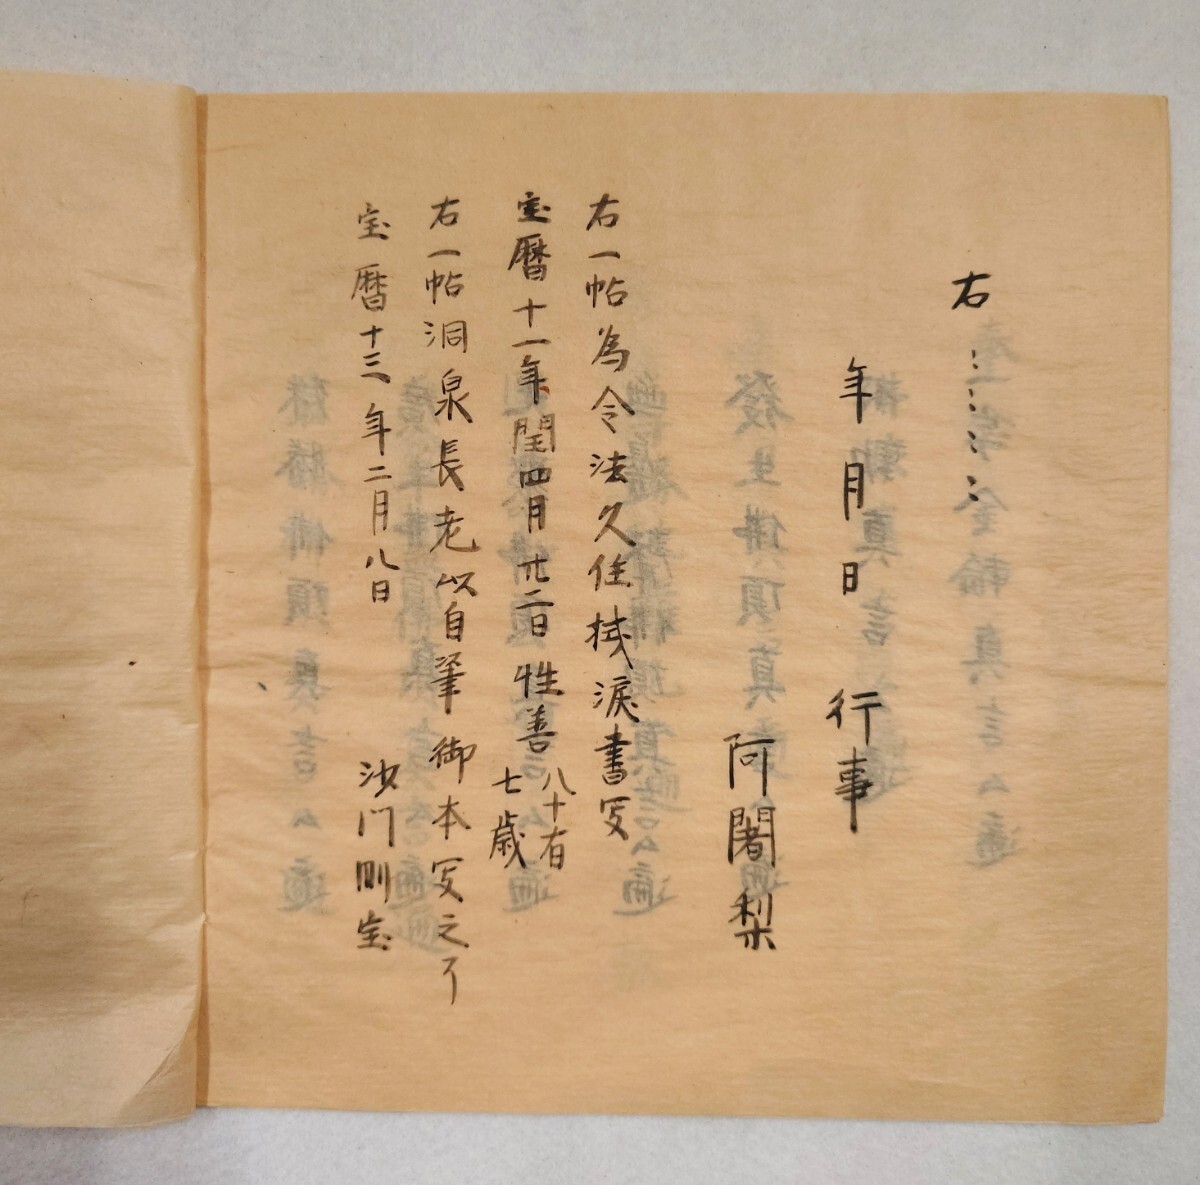 右…………
年月日 行事
阿闍梨
右一帖為令法久住拭淚書写
宝暦十一年閏四月廿二日 性善 八十有
七歳
右一帖洞泉長老以自筆御本写之了
宝暦十三年二月八日 沙門剛宝